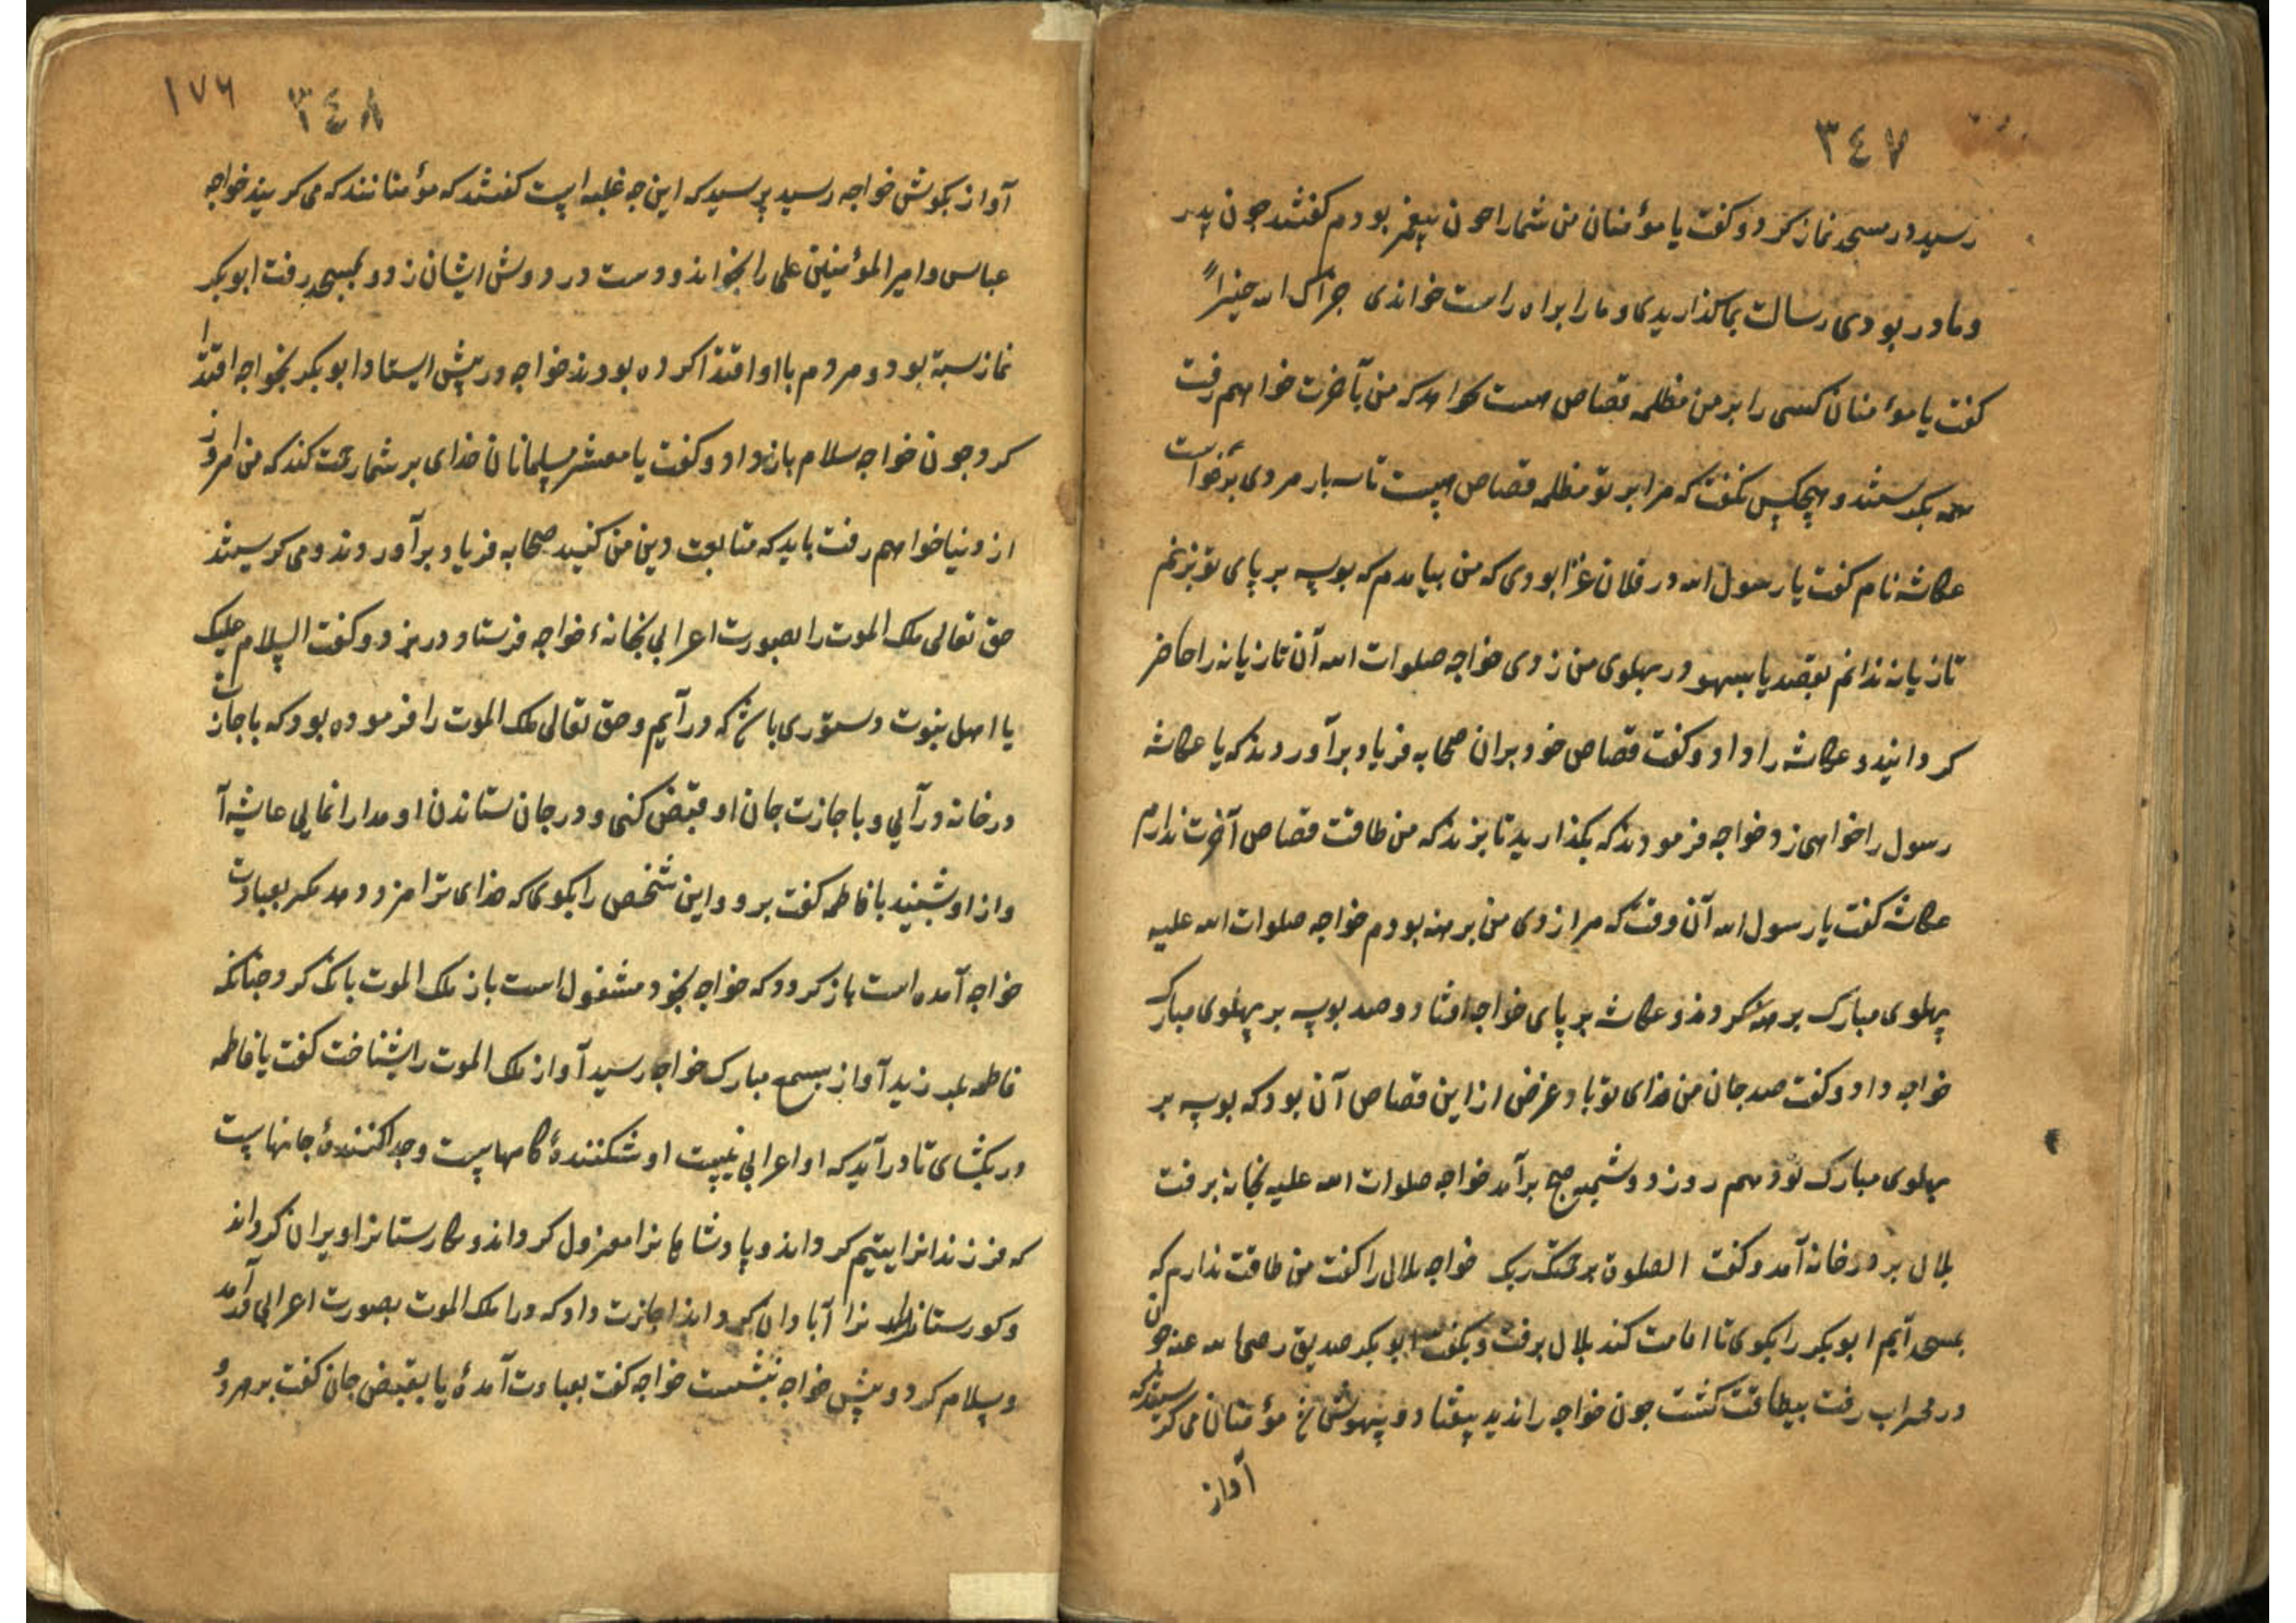 ٣٤٧
رسید در مسجد نماز کرد و کفت یا مؤمنان من شما را جون پیغمبر بودم کفتند جون پدر
و مادر بودی رسالت بما کذاریدی و ما را براه راست خواندی جزاک الله خیراً
کفت یا مؤمنان کسی را بر من مظلمه قصاص هست بخواهد که من بآخرت خواهم رفت
همه بکریستند و هیچکس نکفت که مرا بر تو مظلمه قصاص هست تا سه بار مردی برخواست
عکاشه نام کفت یا رسول الله در فلان غزا بودی که من بیامدم که بوسه بر پای تو بزنم
تازیانه ندانم بقصد یا بسهو در پهلوی من زدی خواجه صلوات الله آن تازیانه را حاضر
کردانید و عکاشه را داد و کفت قصاص خود بران صحابه فریاد برآوردند که یا عکاشه
رسول را خواهی زد خواجه فرمودند که بکذارید تا بزند که من طاقت قصاص آخرت ندارم
عکاشه کفت یا رسول الله آن وقت که مرا زدی من برهنه بودم خواجه صلوات الله علیه
پهلوی مبارک برهنه کردند و عکاشه بر پای خواجه افتاد و صد بوسه بر پهلوی مبارک
خواجه داد و کفت صد جان من فدای تو باد غرض از این قصاص آن بود که بوسه بر
پهلوی مبارک تو دهم روز دوشنبه صبح برآمد خواجه صلوات الله علیه بخانه برفت
بلال بر در خانه آمد و کفت الصلوة یرحمک ربک خواجه بلال را کفت من طاقت ندارم که
بمسجد آیم ابوبکر را بکوی تا امامت کند بلال برفت و بکفت ابوبکر صدیق رضی الله عنه جون
در محراب رفت بیطاقت کشت جون خواجه را ندید بیفتاد و بیهوش شد مؤمنان می کریستند که
آواز
١٧٦ ٣٤٨
آواز بکوش خواجه رسید پرسید که این چه غلبه است کفتند که مؤمنانند که می کریند خواجه
عباس و امیر المؤمنین علی را بخواند و دست در دوش ایشان زد و بمسجد رفت ابوبکر
نماز بسته بود و مردم با او اقتدا کرده بودند خواجه در پیش ایستاد ابوبکر بخواجه اقتدا
کرد جون خواجه سلام باز داد و کفت یا معشر مسلمانان خدای بر شما رحمت کند که من امروز
از دنیا خواهم رفت باید که متابعت دین من کنید صحابه فریاد برآوردند و می کریستند
حق تعالی ملک الموت را بصورت اعرابی بخانهٔ خواجه فرستاد در بزد و کفت السلام علیک
یا اهل نبوت دستوری باشد که درآیم و حق تعالی ملک الموت را فرموده بود که باجازت
در خانه درآیی و باجازت جان او قبض کنی و در جان ستاندن او مدارا نمایی عایشه آ
واز او بشنید با فاطمه کفت برو و این شخص را بکوی که خدای ترا مزد دهد مکر بعیادت
خواجه آمده است باز کردد که خواجه بخود مشغول است باز ملک الموت بانک کرد جنانکه
فاطمه بلرزید آواز بسمع مبارک خواجه رسید آواز ملک الموت را بشناخت کفت یا فاطمه
در بکشای تا درآید که او اعرابی نیست او شکنندهٔ کامهاست و جدا کنندهٔ جانهاست
که فرزندانرا یتیم کرداند و پادشاهانرا معزول کرداند و کارستانرا ویران کرداند
و کورستانرا آبادان کرداند اجازت داد که درا ملک الموت بصورت اعرابی درآمد
و سلام کرد و پیش خواجه بنشست خواجه کفت بعیادت آمدهٔ یا بقبض جان کفت بهر دو